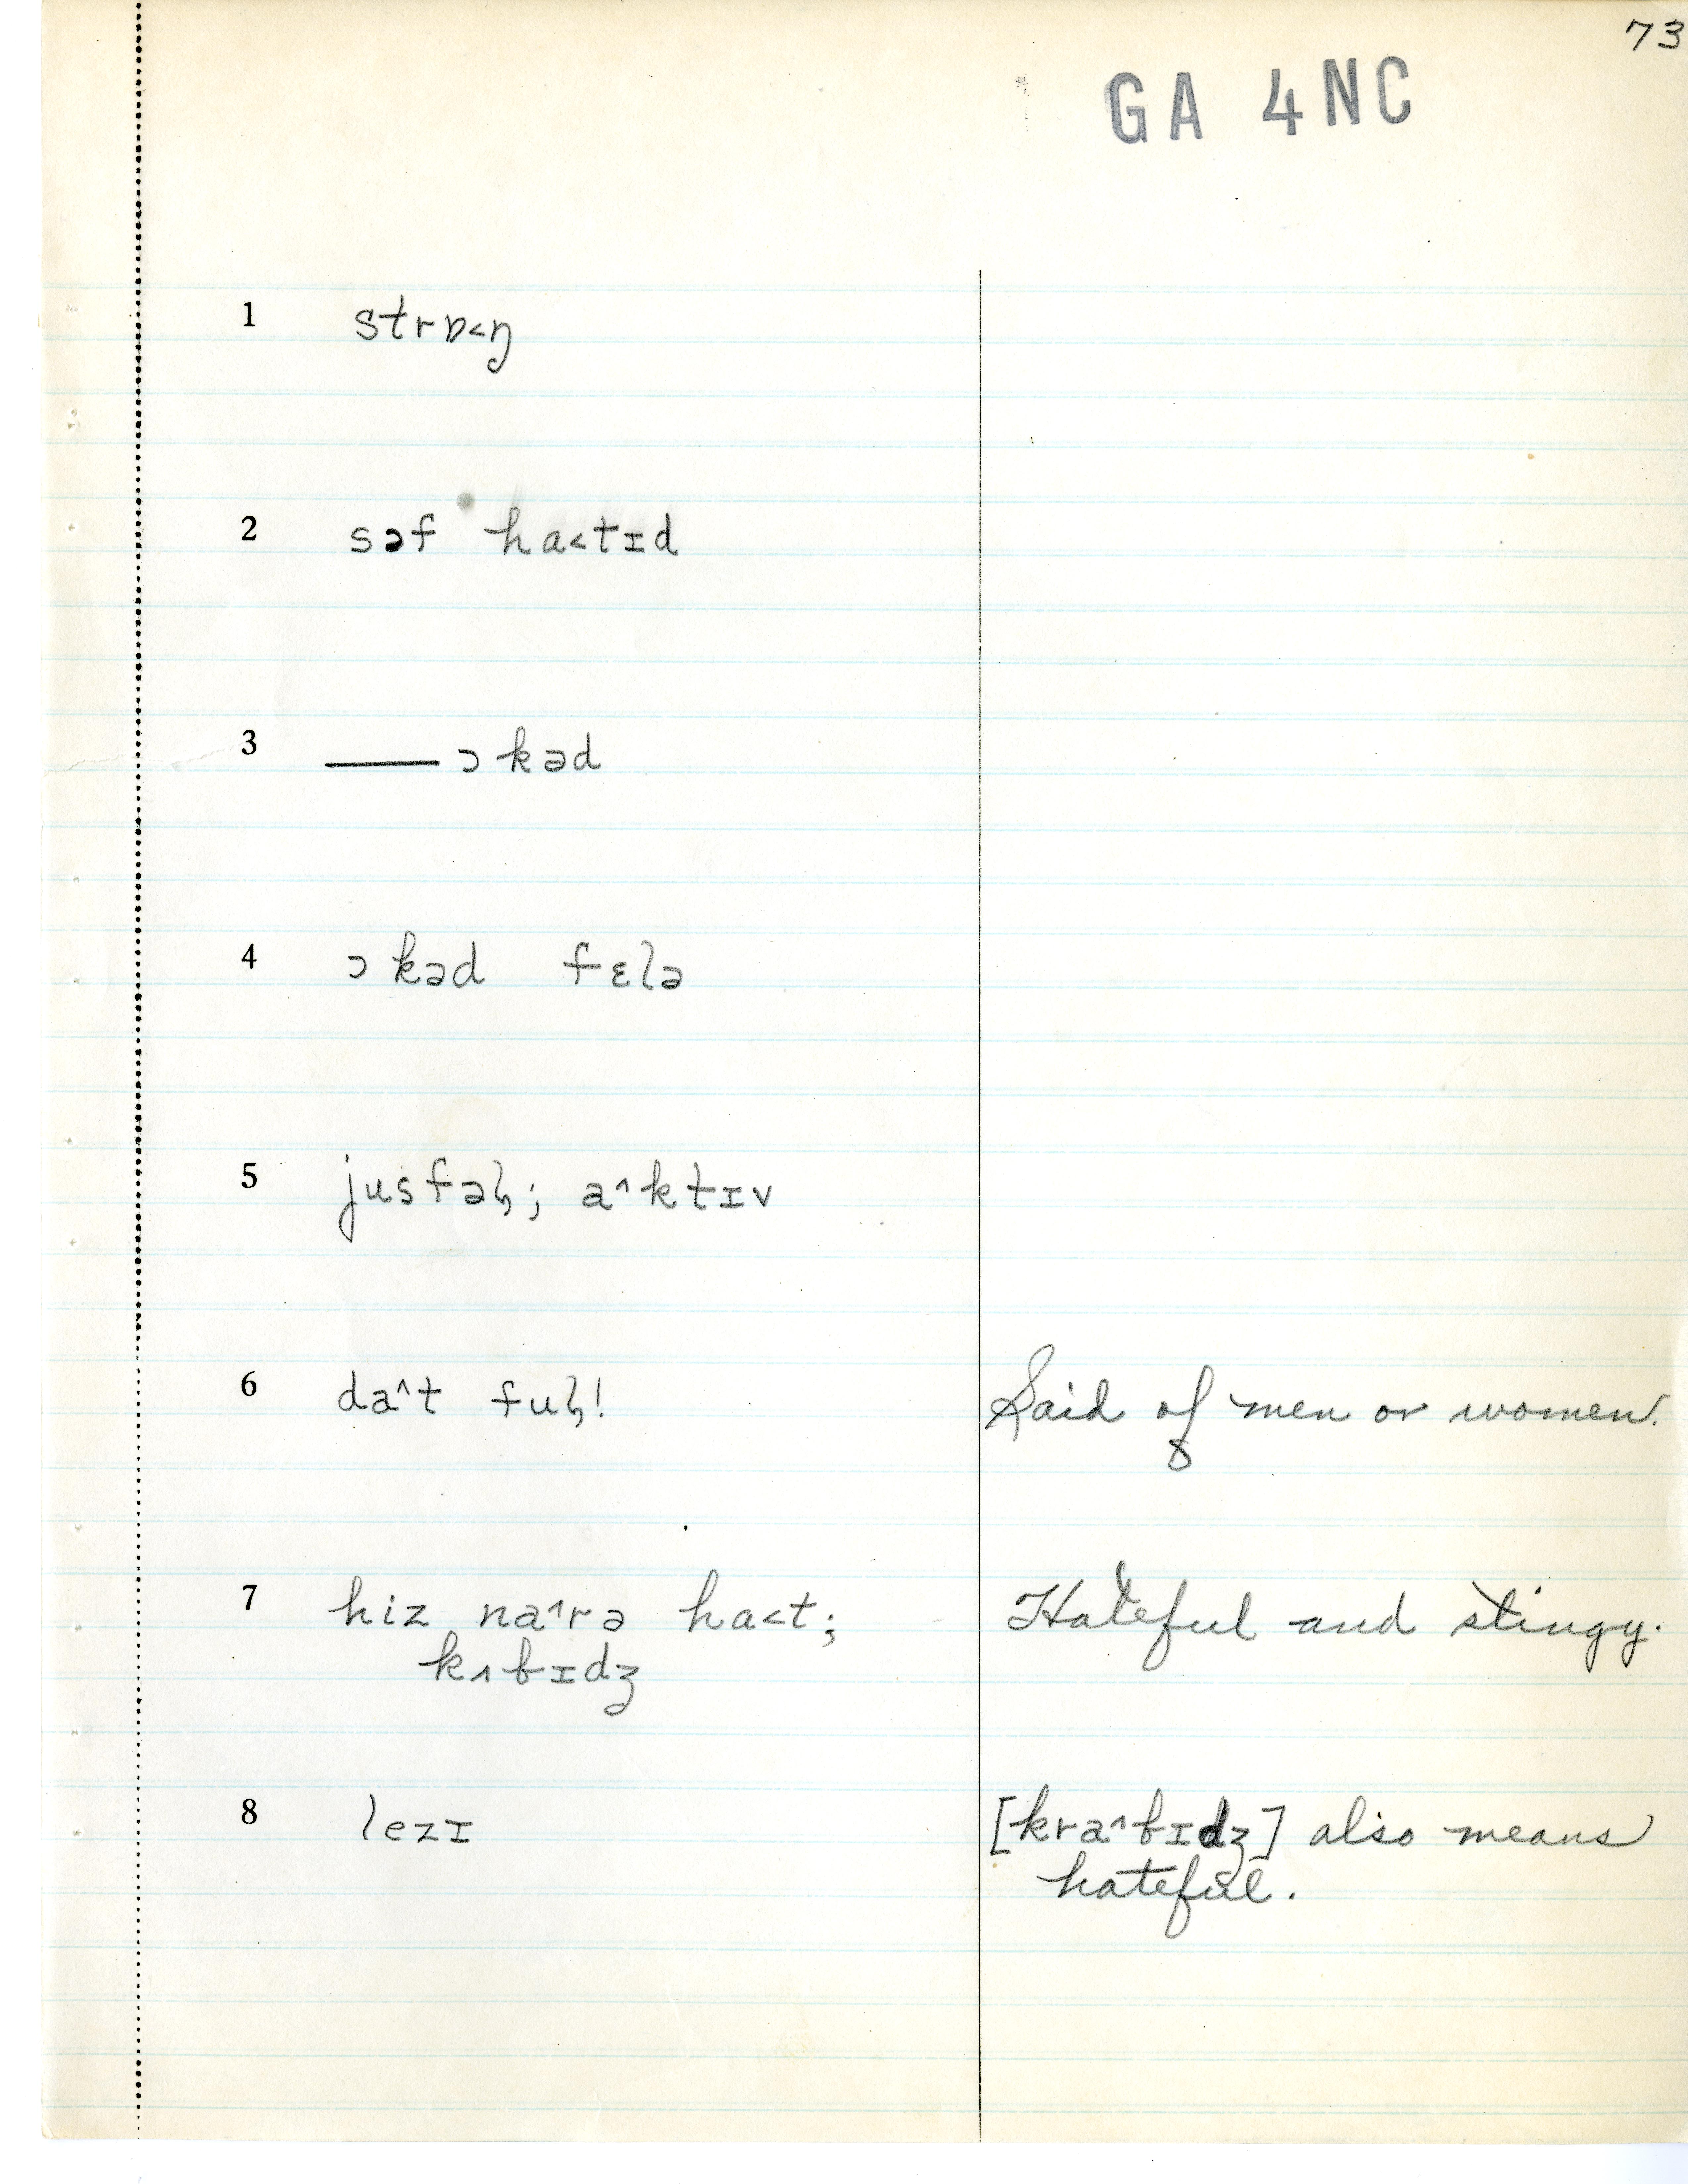 73
GA 4NC
1 strɒ˂ŋ
2 səf ha˂tɪd
3 —— ɔkəd
4 ɔkəd fɛlə
5 jusfəl̩; a˄ktɪv
6 da˄t ful̩! Said of men or women.
7 hiz na˄rə ha˂t; Hateful and stingy.
kʌbɪdʒ
8 lezɪ [kra˄bɪdʒ] also means
hateful.